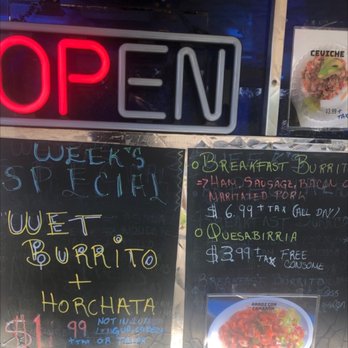 OPEN
CEVICHE
+ TAX
WEEK'S
SPECIAL
WET
BURRITO
+
HORCHATA
99
NOT INCLU
+ TAX OR
BREAKFAST BURRITO
=> HAM, SAUSAGE, BACON O
MARINATED PORK
$ 6.99 + TAX (ALL DAY)
QUESABIRRIA
$3.99 + TAX FREE
CONSOME
BREAKFAST BURRITO
ARROZ CON